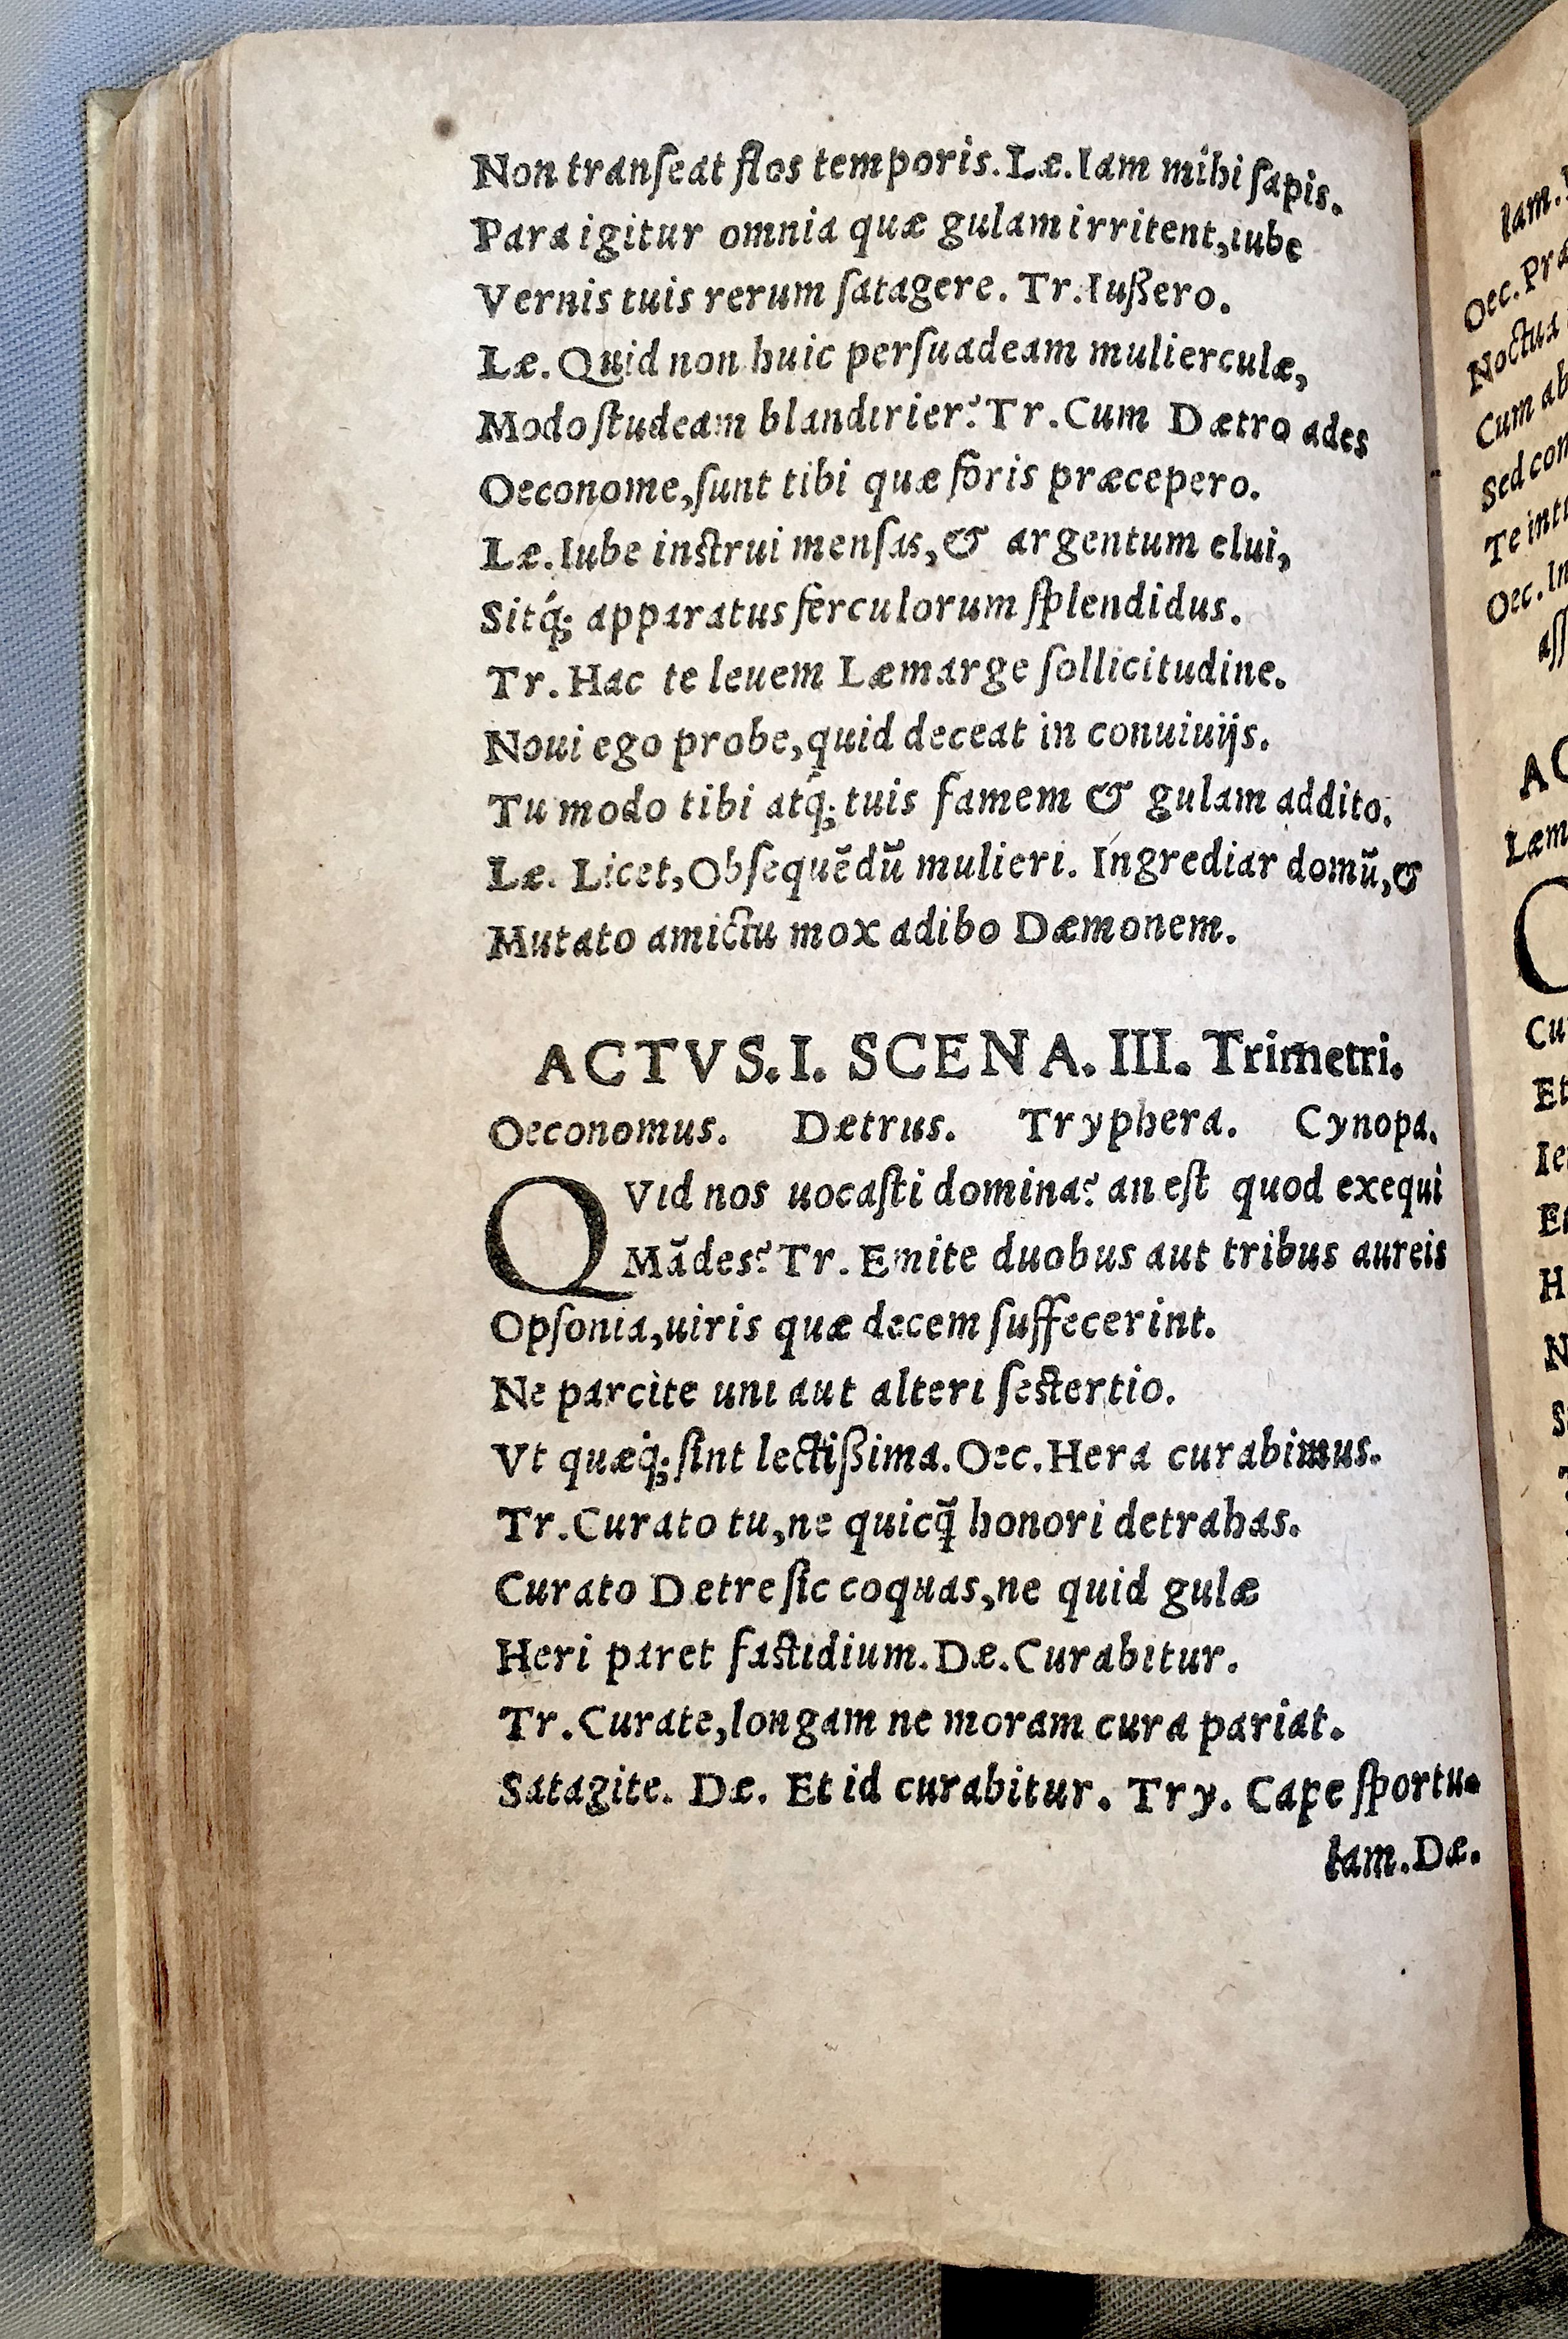 Non tranſeat flos temporis. Læ. Iam mihi ſapis.
Para igitur omnia quæ gulam irritent, iube
Vernis tuis rerum ſatagere. Tr. Iußero.
Læ. Quid non huic perſuadeam mulierculæ,
Modo ſtudeam blandirier? Tr. Cum Dætro ades
Oeconome, ſunt tibi quæ foris præcepero.
Læ. Iube inſtrui menſas, & argentum elui,
Sitq́; apparatus ferculorum ſplendidus.
Tr. Hac te leuem Læmarge ſollicitudine.
Noui ego probe, quid deceat in conuiuijs.
Tu modo tibi atq́; tuis famem & gulam addito.
Læ. Licet, Obſequẽdũ mulieri. Ingrediar domũ, &
Mutato amictu mox adibo Dæmonem.
ACTVS. I. SCENA. III. Trimetri.
Oeconomus. Dætrus. Tryphera. Cynopa.
QVid nos uocaſti domina? an eſt quod exequi
Mãdes? Tr. Emite duobus aut tribus aureis
Opſonia, uiris quæ decem ſuffecerint.
Ne parcite uni aut alteri ſeſtertio.
Vt quæq́; ſint lectißima. Oec. Hera curabimus.
Tr. Curato tu, ne quicq̃ honori detrahas.
Curato Dętre ſic coquas, ne quid gulæ
Heri paret faſtidium. Dæ. Curabitur.
Tr. Curate, longam ne moram cura pariat.
Satagite. Dæ. Et id curabitur. Try. Cape ſportu-
lam. Dæ.
Iam.
Oec. Præ
Noctua
Cum ab
Sed con
Te intr
Oec. In
aſſ
AC
Læm
Cu
Et